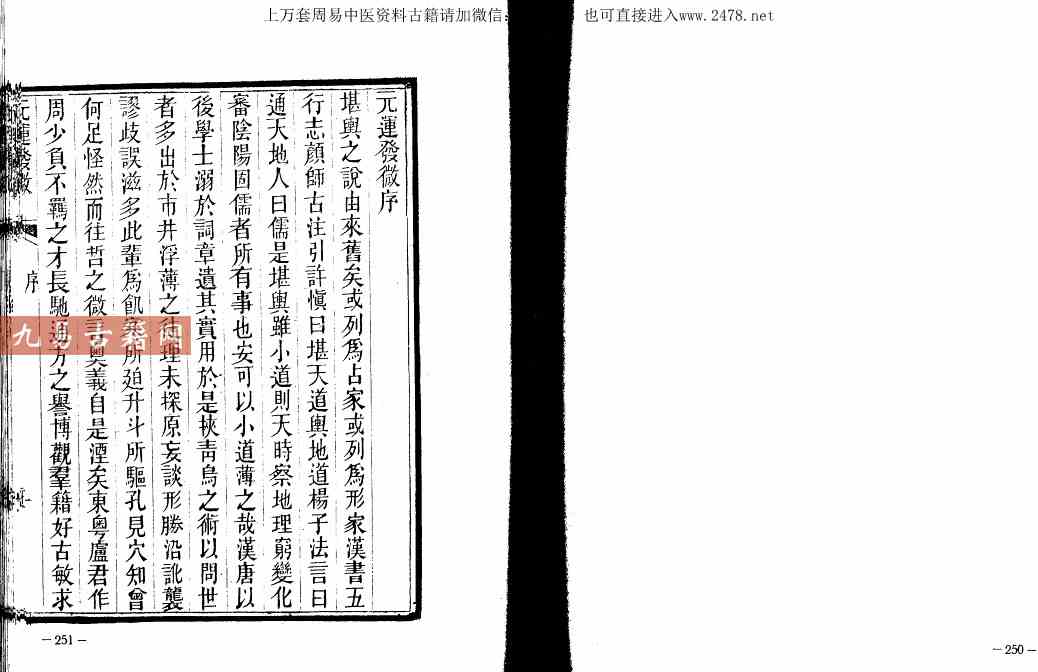 上万套周易中医资料古籍请加微信：
也可直接进入www.2478.net
元運發微序
堪輿之說由來舊矣或列爲占家或列爲形家漢書五
行志顏師古注引許愼曰堪天道輿地道楊子法言曰
通天地人曰儒是堪輿雖小道則天時察地理窮變化
審陰陽固儒者所有事也安可以小道薄之哉漢唐以
後學士溺於詞章遺其實用於是挾靑烏之術以問世
者多出於市井浮薄之理未探原妄談形勝沿訛襲
謬歧誤滋多此輩爲飢所廹升斗所驅孔見穴知曾
何足怪然而往哲之微言奧義自是湮矣東粵盧君作
周少負不羈之才長馳通方之譽博觀羣籍好古敏求
元運發微
序
九易古籍网
－251－
－250－